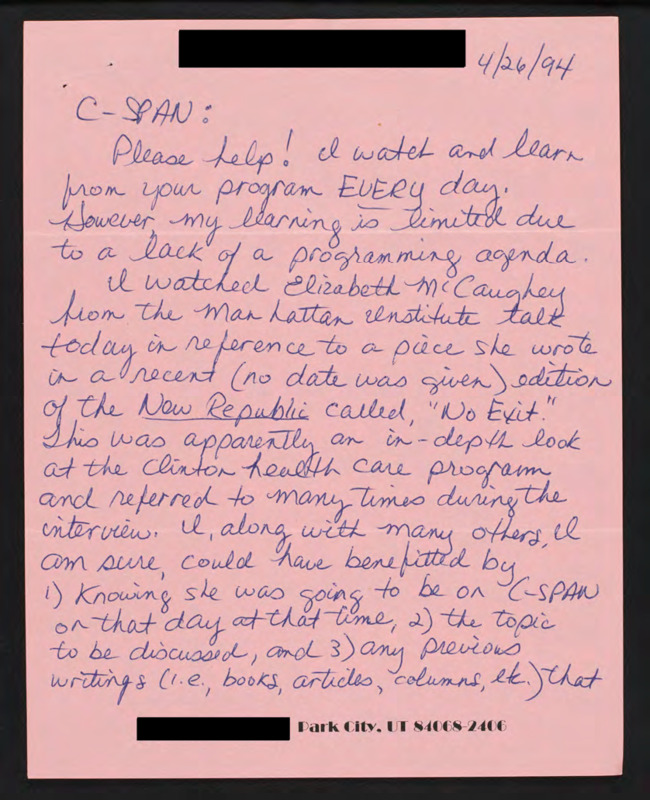 4/26/94
C-SPAN:
Please help! I watch and learn
from your program EVERY day.
However, my learning is limited due
to a lack of a programming agenda.
I watched Elizabeth McCaughey
from the Manhattan Institute talk
today in reference to a piece she wrote
in a recent (no date was given) edition
of the New Republic called, "No Exit."
This was apparently an in-depth look
at the Clinton health care program
and referred to many times during the
interview. I, along with many others, I
am sure, could have benefitted by
1) Knowing she was going to be on C-SPAN
on that day at that time, 2) the topic
to be discussed, and 3) any previous
writings (i.e., books, articles, columns, etc.) that
Park City, UT 84068-2406